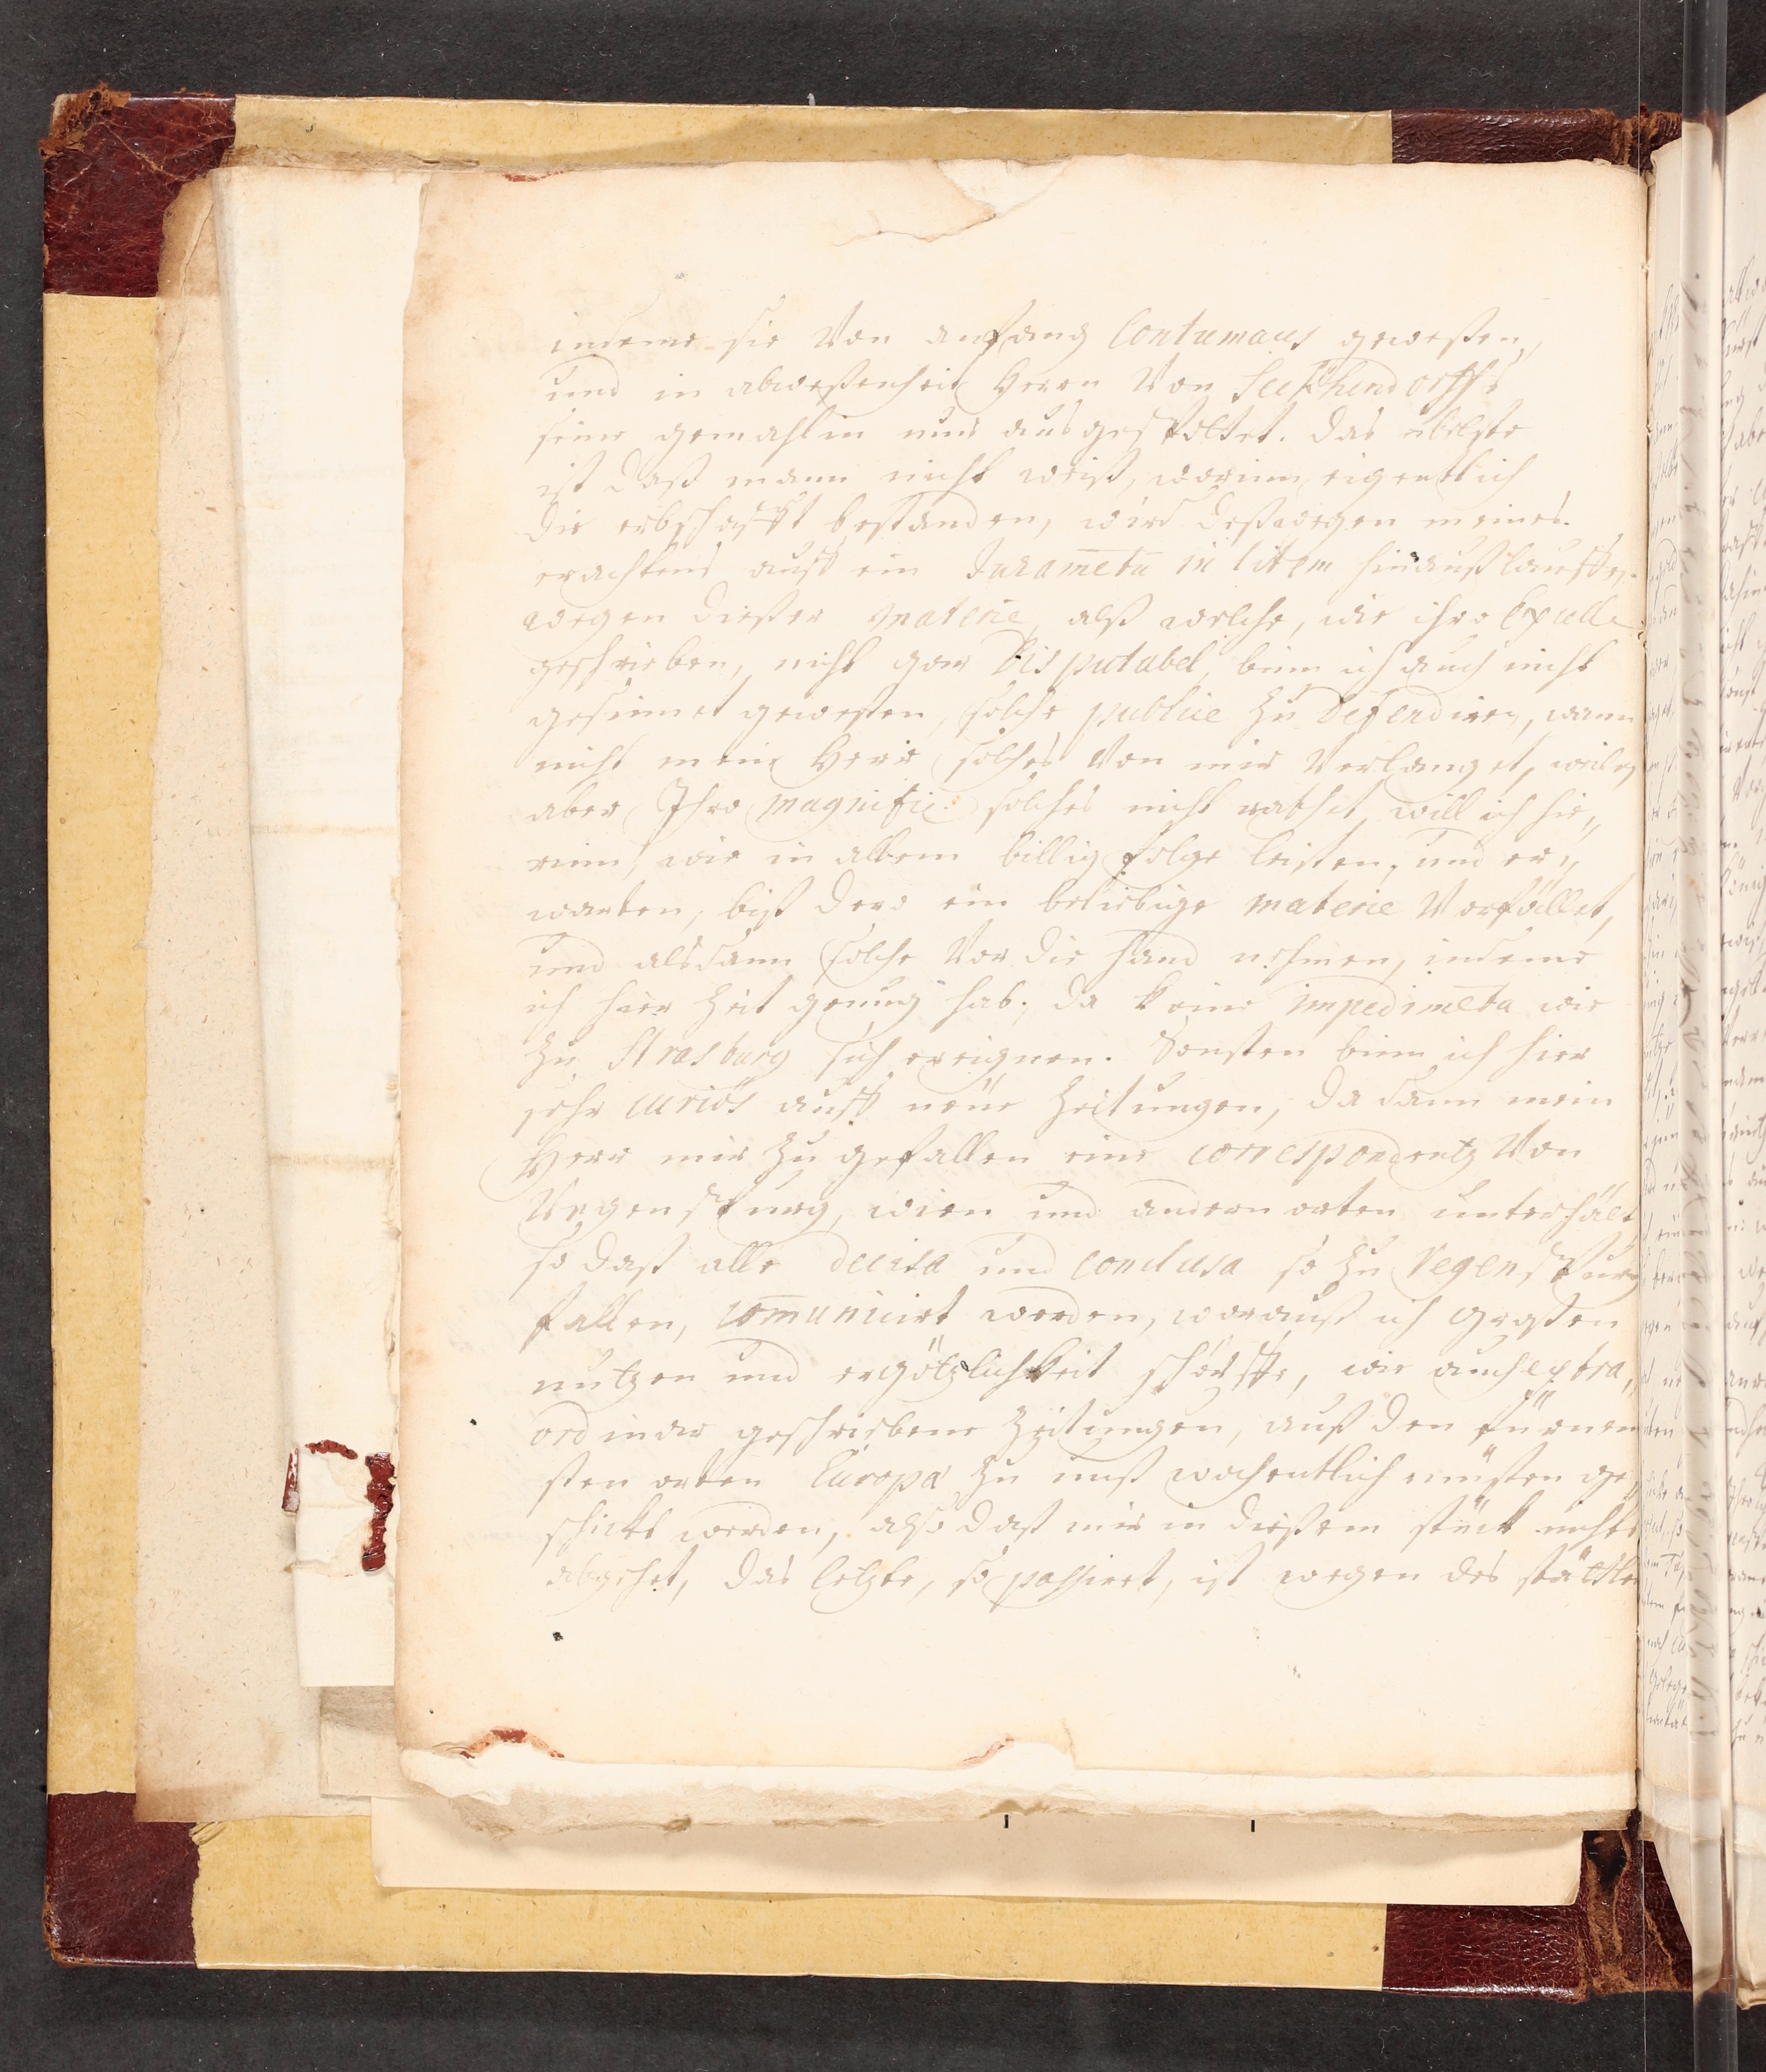 indeme sie Von anfang Contumaces geweßen,
und in abweßenheit Herrn Von Seckhendorffs
seine gemahlin nur ausgespottet. das übelste
ist daß mann nicht weiß, worinn eigentlich
die erbschafft bestanden, wird deßwegen meines
erachtens auff ein Juramētū in litem hinauß lauffen.
wegen dießer materie, alß welche, wie ihro Excell.
geschrieben, nicht gar disputabel, binn ich auch nicht
gesinnet geweßen, solche publice zu defendiren, wann
nicht mein Herr solches Von mir Verlanget, weilen
aber Ihro Magnific: solches nicht rathet, will ich hie„
rinn, wie in allem billig folge leisten, und er„
warten, biß dero ein beliebige materie Vorfället,
und alsdann solche Vor die hand nehmen, indeme
ich hier Zeit genung hab, da keine impedimēta wie
zu Strasburg sich ereignen. Sonsten binn ich hier
sehr curiös auff neue Zeitungen, da dann mein
Herr mir zu gefallen eine correspondentz Von
Regenspurg, wien und andern orten unterhält,
so daß alle decisa und conclusa so zu Regenspurg
fallen, com̄unicirt werden, worauß ich großen
nutzen und ergötzlichkeit schöpffe, wie auch extra„
ordinar geschriebene Zeitungen, auß den fürnem
sten orten Europä zu unß wochentlich müßen ge„
schickt werden, also daß mir in dießem stück nichts
abgehet, das letzte, so passiret, ist wegen des